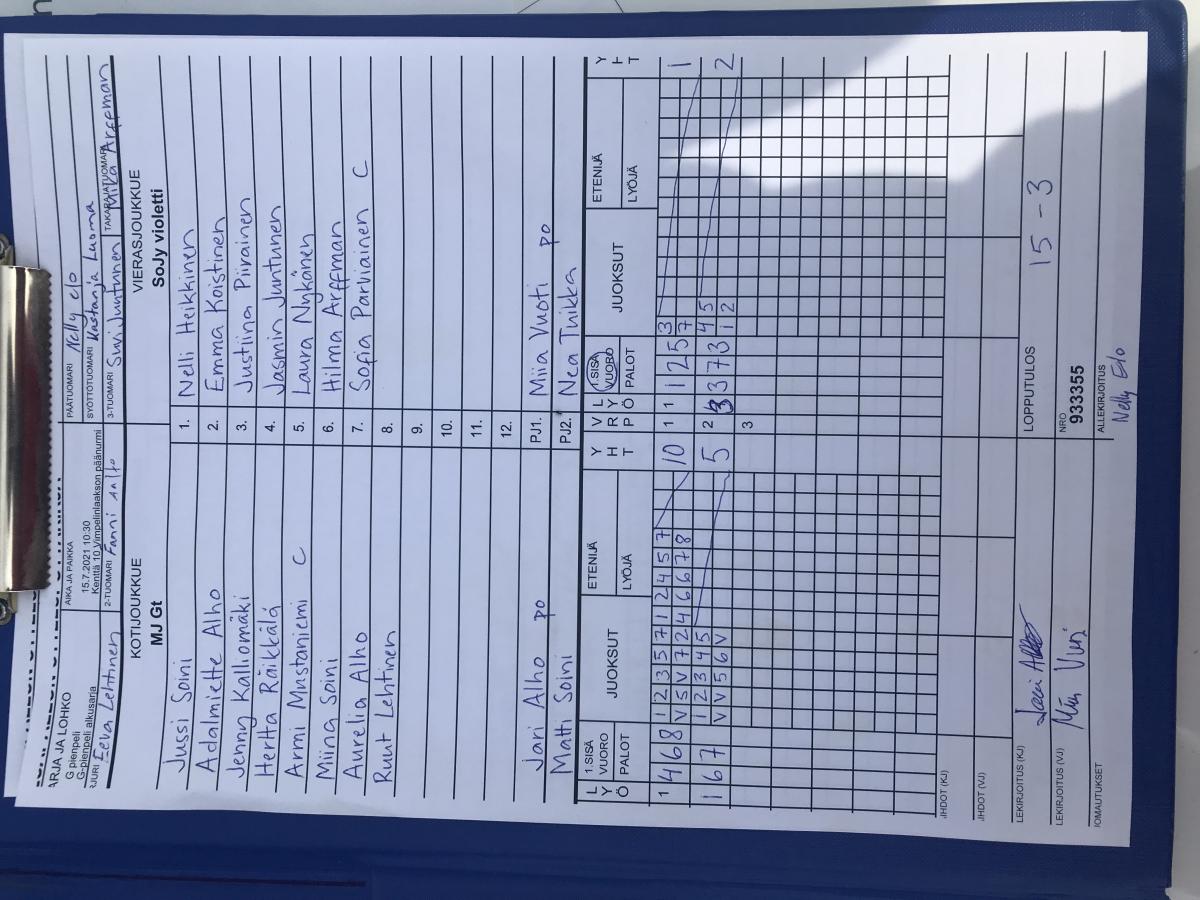 ARJA JA LOHKO
G pienpeli
G-pienpeli alkusarja
AIKA JA PAIKKA
15.7.2021 10:30
Kenttä 10 Vimpelinlaakson päänurmi
PÄÄTUOMARI Nelly Elo
SYÖTTÖTUOMARI Kastanja Luoma
JURI Eeva Lehtinen
2-TUOMARI Fanni
3-TUOMARI Suvi Juntunen
TAKARAJATUOMARI Mika Arffman
KOTIJOUKKUE VIERASJOUKKUE
MJ Gt SoJy violetti
Jussi Soini 1. Nelli Heikkinen
Adalmiette Alho 2. Emma Koistinen
Jenny Kalliomäki 3. Justiina Piirainen
Hertta Räikkälä 4. Jasmin Juntunen
Armi Mustaniemi C 5. Laura Nykänen
Miina Soini 6. Hilma Arffman
Aurelia Alho 7. Sofia Parviainen C
Ruut Lehtinen 8.
9.
10.
11.
12.
Jari Alho po PJ1. Miia Vuoti po
Matti Soini PJ2. Nea Tuikka
LYÖ 1.SISÄ VUORO PALOT JUOKSUT ETENIJÄ LYÖJÄ YHT VRP LYÖ 1.SISÄ VUORO PALOT JUOKSUT ETENIJÄ LYÖJÄ YHT
1 4 6 8 1 2 3 5 7 1 2 4 5 7 10 1 1 1 2 5 3 1
V 5 V 7 2 4 6 6 7 8 7
1 6 7 1 2 3 4 5 5 2 3 3 7 3 4 5 2
V V 5 6 V 1 2
3
HDOT (KJ)
HDOT (VJ)
LEKIRJOITUS (KJ) Jari LOPPUTULOS 15 - 3
LEKIRJOITUS (VJ) NRO 933355
IOMAUTUKSET ALLEKIRJOITUS
Nelly Elo